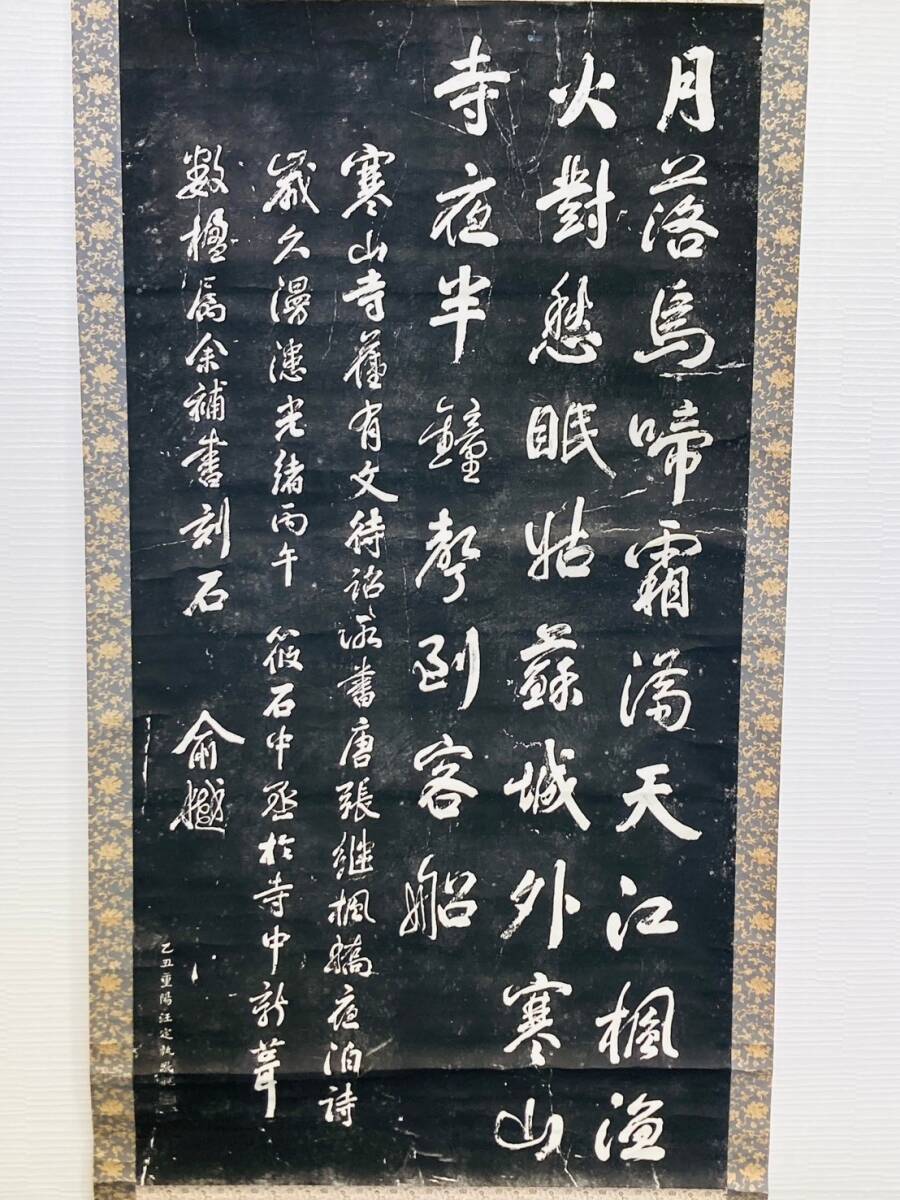 月落烏啼霜滿天江楓漁
火對愁眠姑蘇城外寒山
寺夜半鐘聲到客船
寒山寺舊有文待詔所書唐張繼楓橋夜泊詩
歲久漫漶光緒丙午 筱石中丞於寺中新葺
數楹屬余補書刻石
俞樾
乙丑重陽汪定執